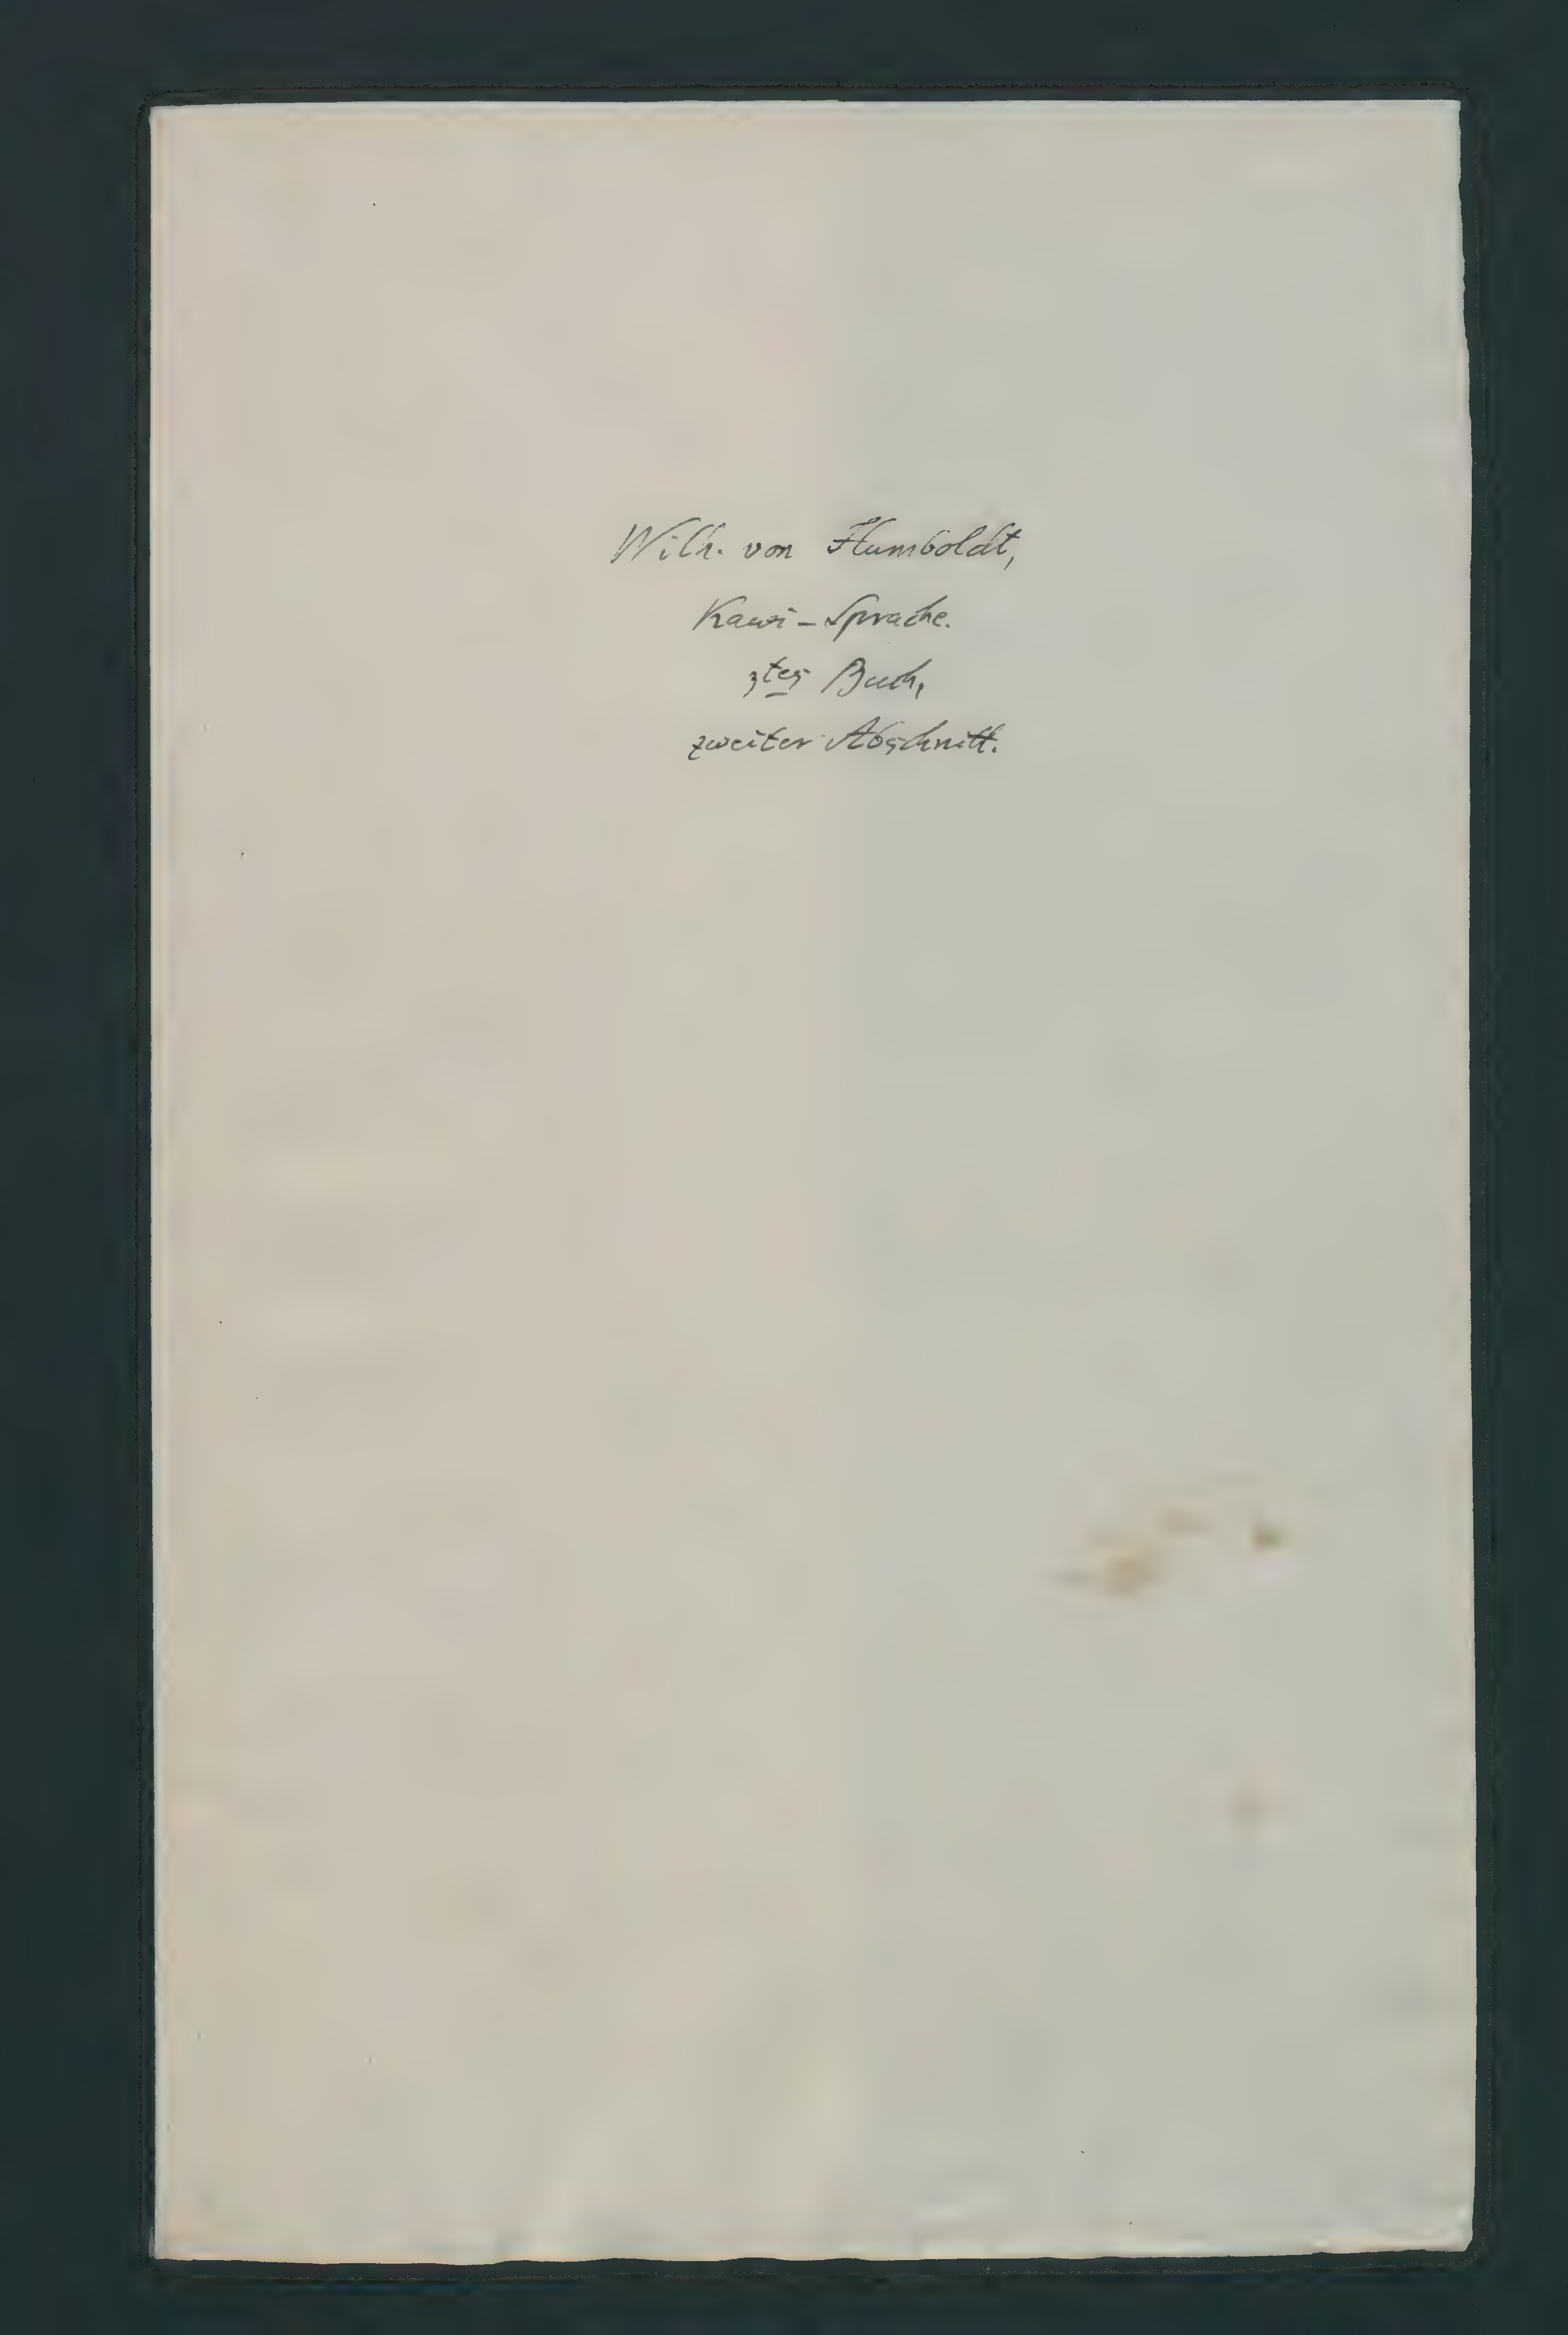 Wilh. von Humboldt,
Kawi-Sprache.
3tes Buch,
zweiter Abschnitt.